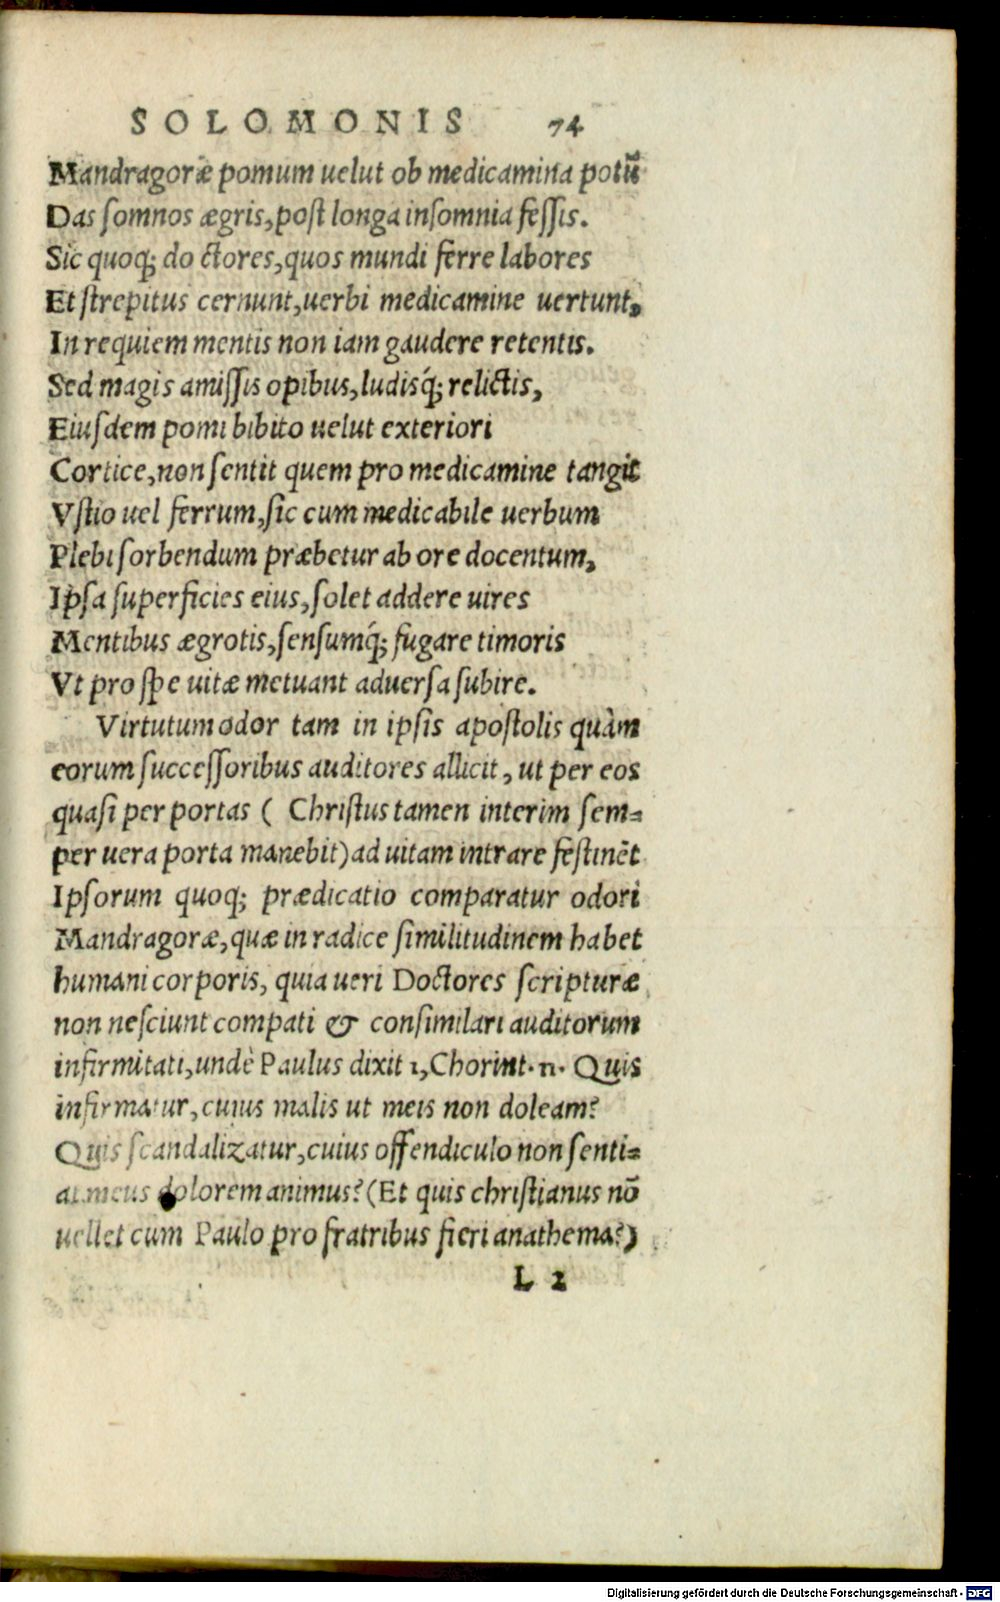 SOLOMONIS 74
Mandragoræ pomum uelut ob medicamina potũ
Das somnos ægris, post longa insomnia fessis.
Sic quoq; doctores, quos mundi ferre labores
Et strepitus cernunt, uerbi medicamine uertunt,
In requiem mentis non iam gaudere retentis.
Sed magis amissis opibus, ludisq́; relictis,
Eiusdem pomi bibito uelut exteriori
Cortice, non sentit quem pro medicamine tangit
Vstio uel ferrum, sic cum medicabile uerbum
Plebi sorbendum præbetur ab ore docentum,
Ipsa superficies eius, solet addere uires
Mentibus ægrotis, sensumq́; fugare timoris
Vt pro spe uitæ metuant aduersa subire.
Virtutum odor tam in ipsis apostolis quàm
eorum successoribus auditores allicit, ut per eos
quasi per portas ( Christus tamen interim sem-
per uera porta manebit) ad uitam intrare festinẽt
Ipsorum quoq; prædicatio comparatur odori
Mandragoræ, quæ in radice similitudinem habet
humani corporis, quia ueri Doctores scripturæ
non nesciunt compati & consimilari auditorum
infirmitati, undè Paulus dixit 1, Chorint. 11. Quis
infirmatur, cuius malis ut meis non doleam?
Quis scandalizatur, cuius offendiculo non senti-
at meus dolorem animus? (Et quis christianus nõ
uellet cum Paulo pro fratribus fieri anathema?)
L 2
Digitalisierung gefördert durch die Deutsche Forschungsgemeinschaft - DFG